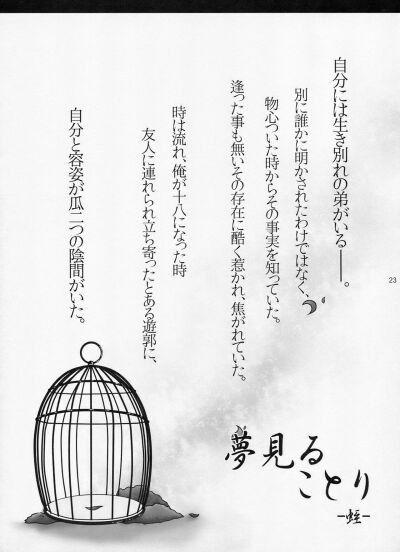 自分には生き別れの弟がいる――。
別に誰かに明かされたわけではなく、
物心ついた時からその事実を知っていた。
逢った事も無いその存在に酷く惹かれ、焦がれていた。
時は流れ、俺が十八になった時
友人に連れられ立ち寄ったとある遊郭に、
自分と容姿が瓜二つの陰間がいた。
夢見る
ことり
-蛭-
23